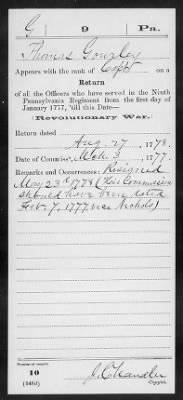 G | 9 | Pa.
Thomas Gourley
Appears with the rank of Capt on a
Return
of all the Officers who have served in the Ninth
Pennsylvania Regiment from the first day of
January 1777, 'till this Date—
(Revolutionary War.)
Return dated
Aug. 27, 1778.
Date of Commiss'n Mch. 3, 1777.
Remarks and Occurrences: Resigned
May 23d 1778 (His Commission
should have been dated
Feb. 7, 1777, vice Nichols)
Number of record:
10
(545d)
J. Chandler
Copyist.